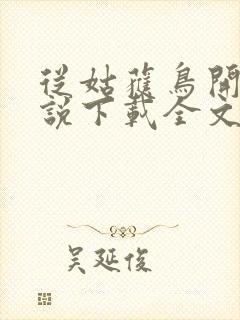 從姑獲鳥開
說下載全文
吳延俊